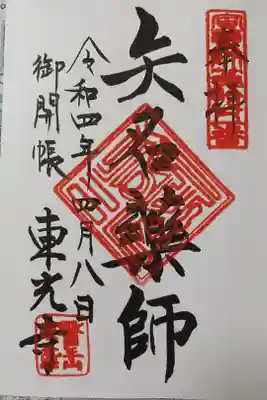 奉拝
矢名薬師
令和四年四月八日
御開帳 東光寺